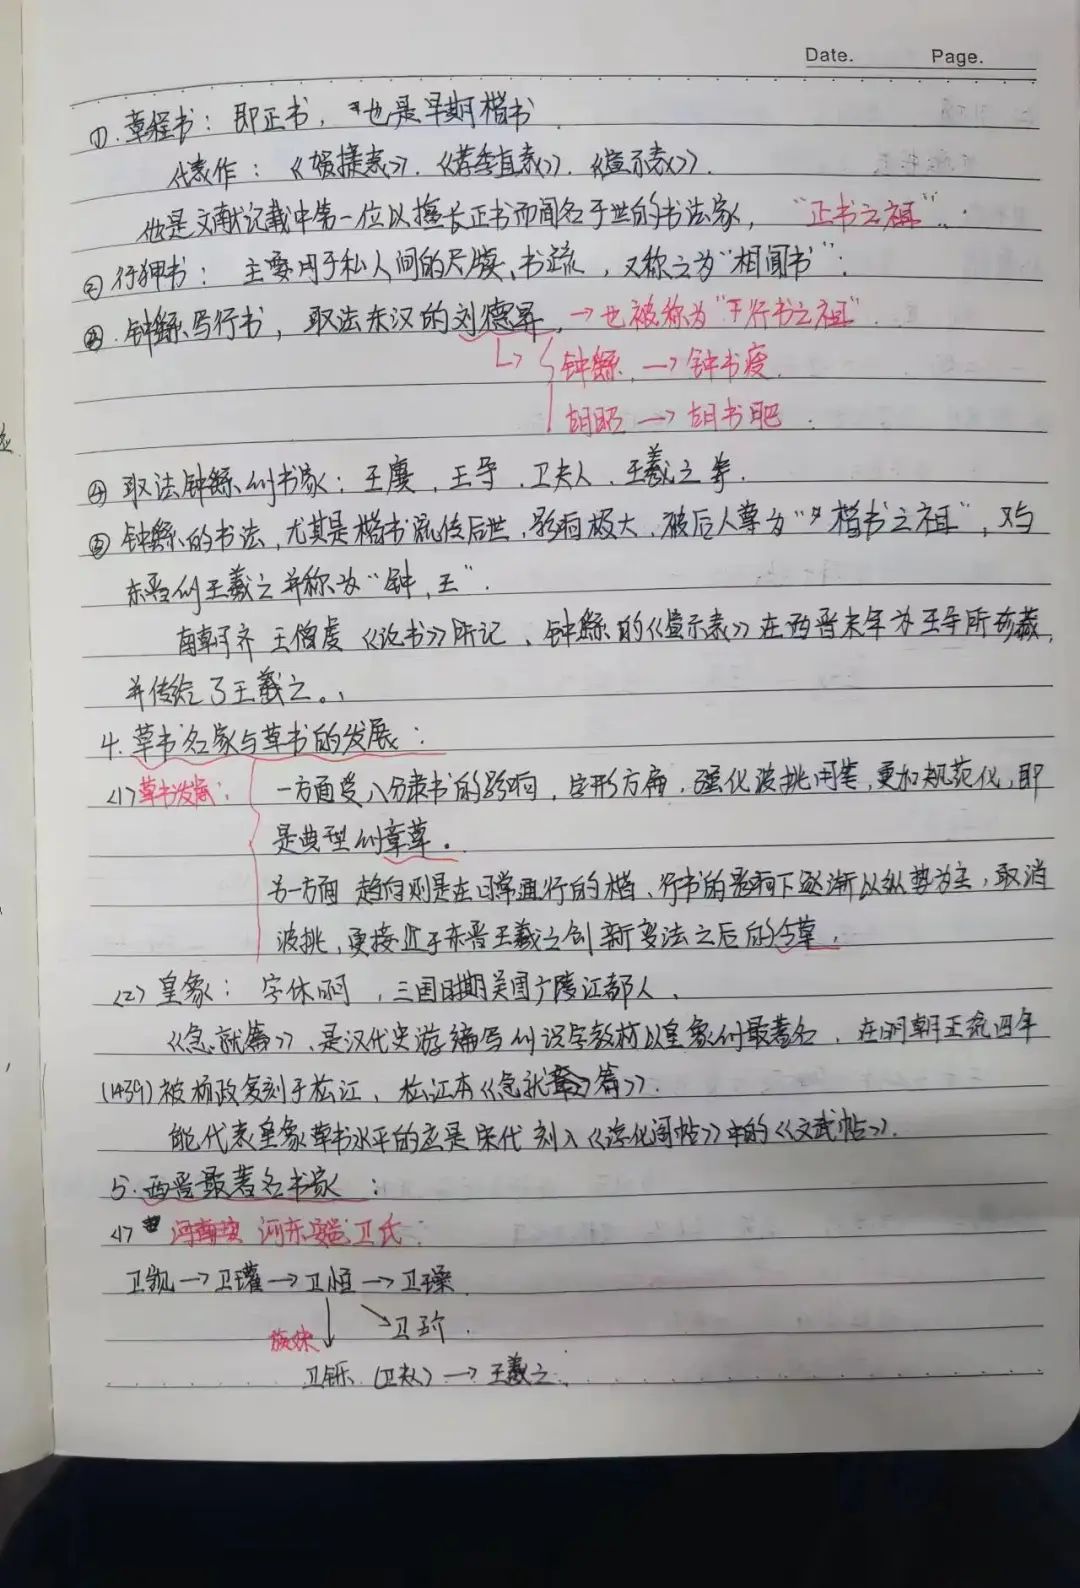 Date. Page.
①.章程书：即正书，也是早期楷书
代表作：《贺捷表》.《荐季直表》.《宣示表》.
他是文献记载中第一位以擅长正书而闻名于世的书法家，“正书之祖”.
②行狎书：主要用于私人间的尺牍、书疏，又称之为“相闻书”.
③.钟繇写行书，取法东汉的刘德昇，→也被称为“行书之祖”.
钟繇.→钟书瘦.
胡昭→胡书肥.
④取法钟繇的书家：王廙.王导.卫夫人.王羲之等.
⑤钟繇的书法,尤其是楷书流传后世,影响极大.被后人尊为“楷书之祖”,又与
东晋的王羲之并称为“钟、王”.
南朝齐王僧虔《论书》所记、钟繇的《宣示表》在西晋末年为王导所珍藏,
并传给了王羲之。
4.草书名家与草书的发展：
(1)草书发展：一方面受八分隶书的影响，字形方扁，强化波挑用笔，更加规范化，即
是典型的章草.
另一方面趋向则是在日常通行的楷、行书的影响下逐渐以纵势为主，取消
波挑，更接近于东晋王羲之创新变法之后的今草.
(2)皇象：字休明，三国时期吴国广陵江都人.
《急就篇》、是汉代史游编写的识字教材以皇象的最著名，在明朝正统四年
(1439)被杨政复刻于松江、松江本《急就篇》.
能代表皇象草书水平的应是宋代刻入《淳化阁帖》中的《文武帖》.
5.西晋最著名书家：
(1)河东安邑卫氏：
卫觊→卫瓘→卫恒→卫璪
→卫玠.
族妹
卫铄(卫夫人)→王羲之.